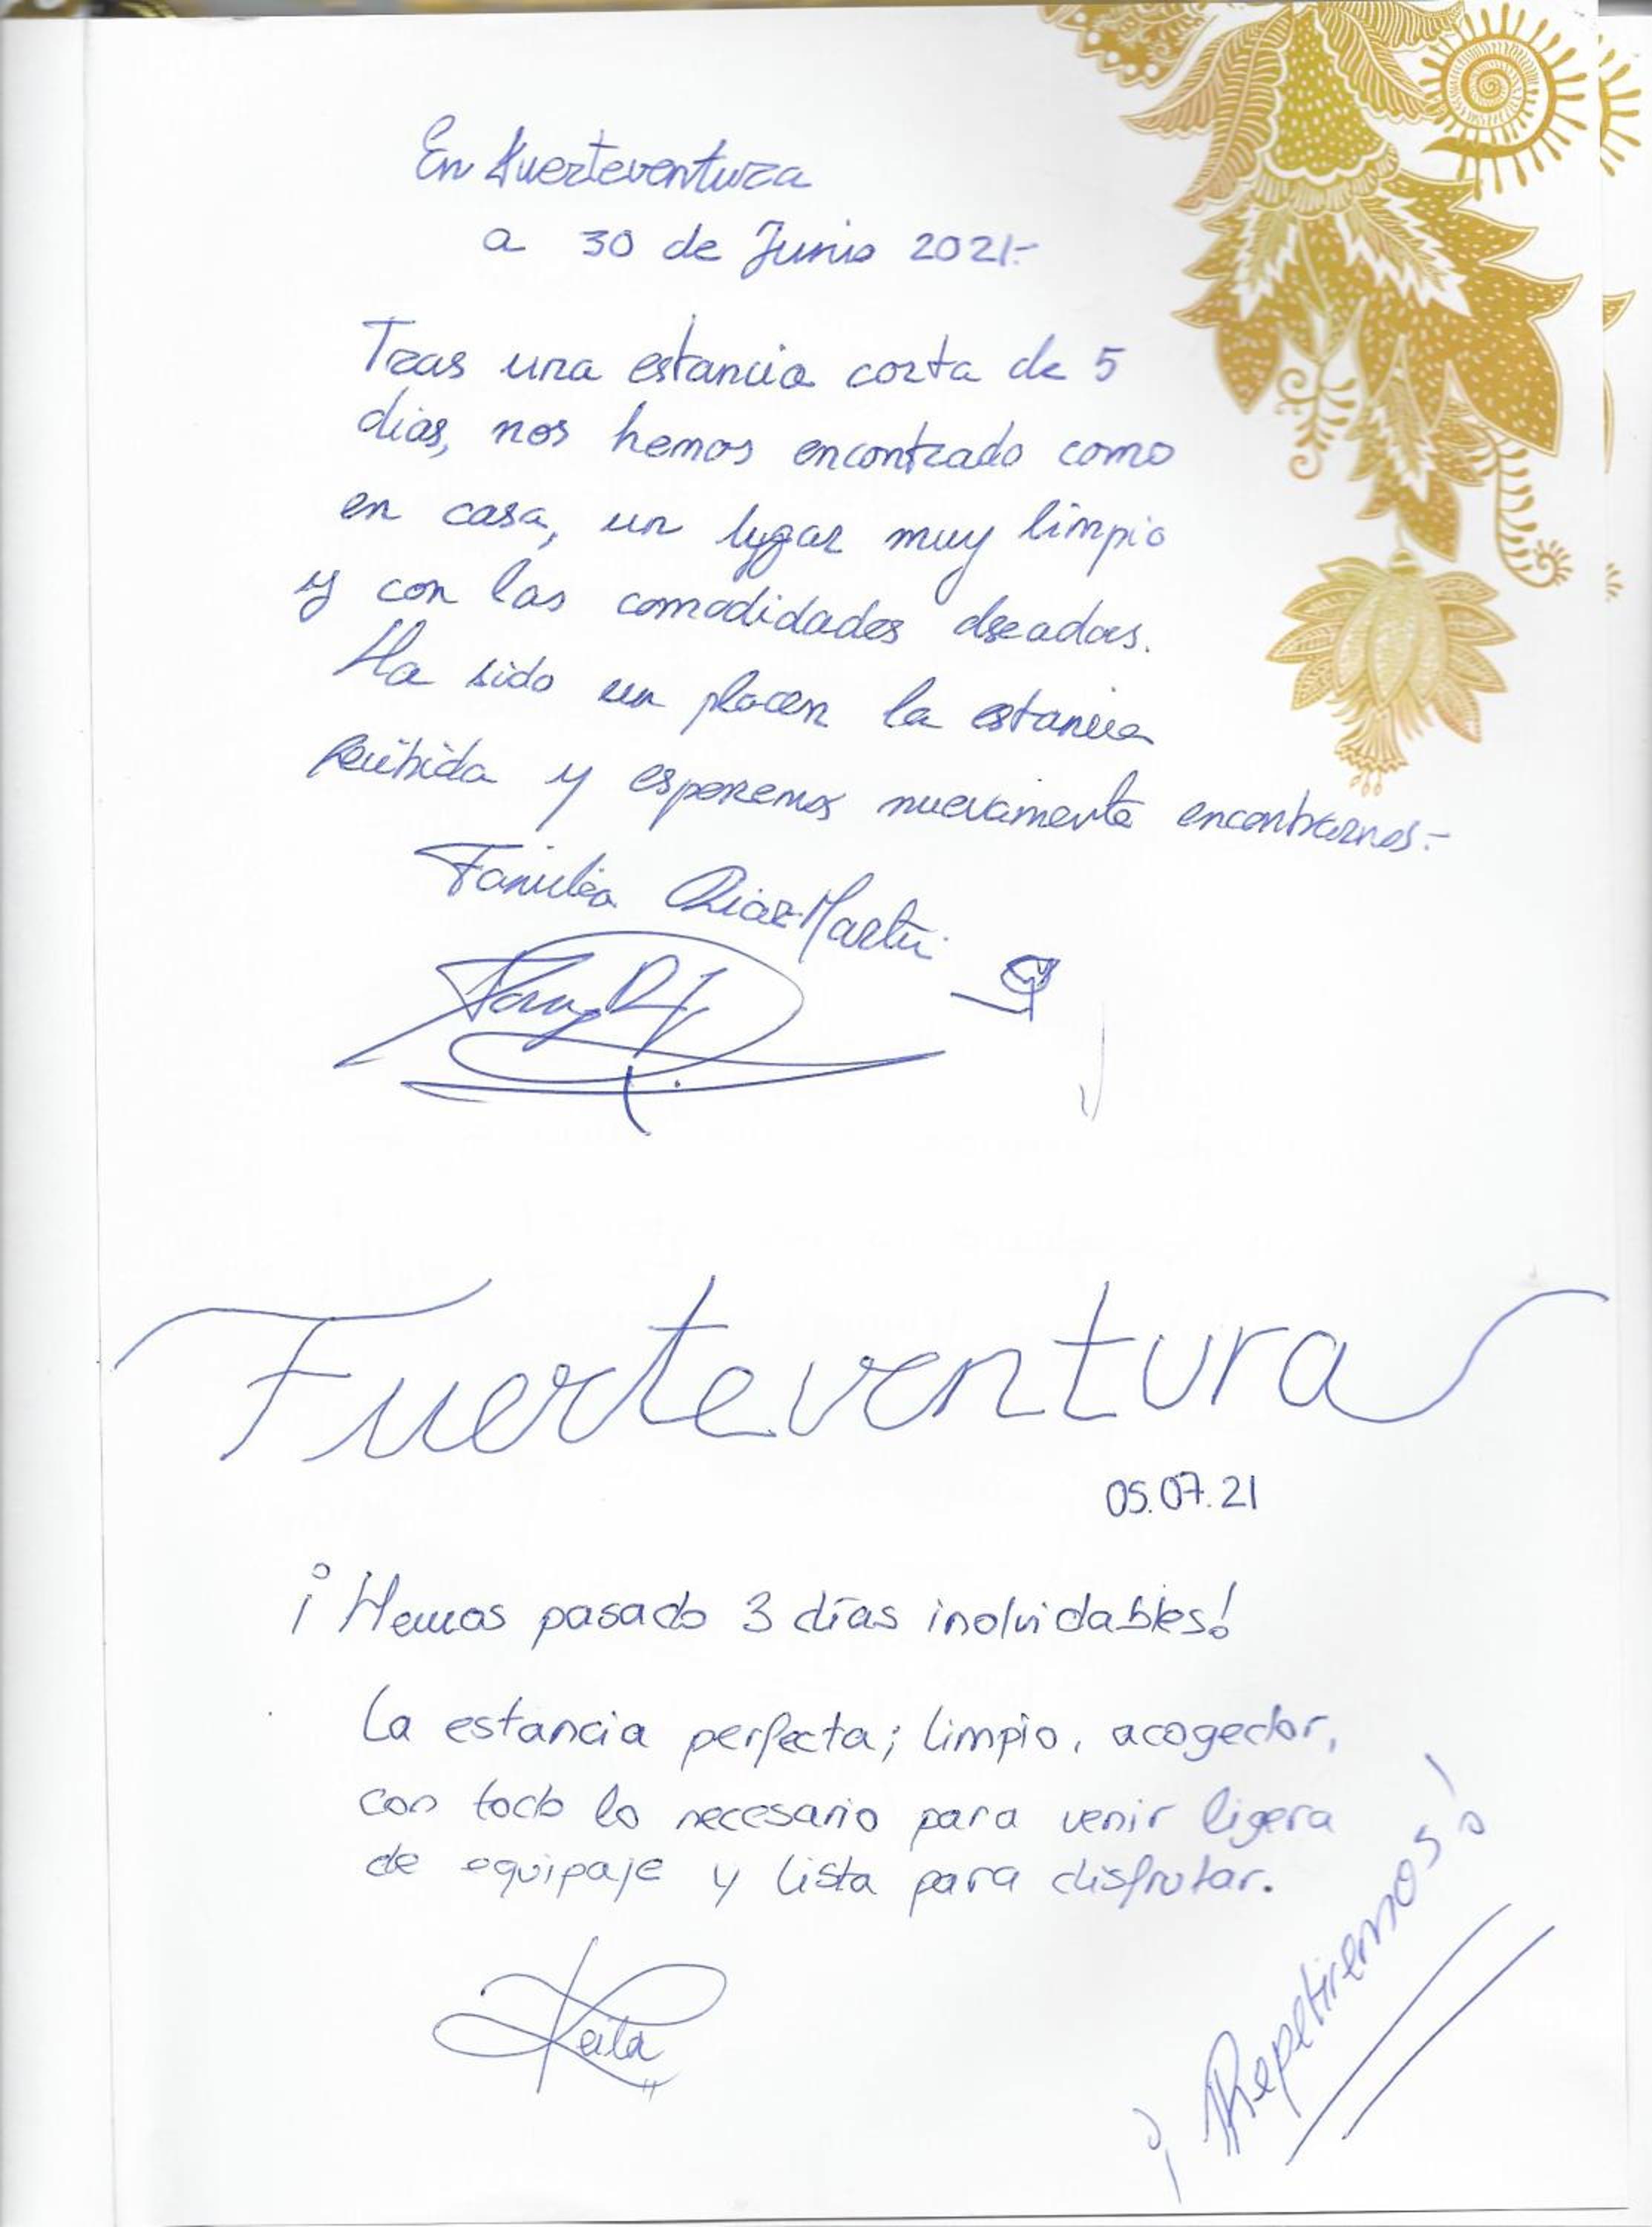 En Fuerteventura
a 30 de Junio 2021.-
Tras una estancia corta de 5
dias, nos hemos encontrado como
en casa, un lugar muy limpio
y con las comodidades dseadas.
Ha sido un placer la estancia
recibida y esperemos nuevamente encontrarnos.-
Familia Diaz-Martin
Fuerteventura
05.07.21
¡Hemos pasado 3 días inolvidables!
La estancia perfecta; limpio, acogedor,
con todo lo necesario para venir ligera
de equipaje y lista para disfrutar.
Keila
¡Repetiremos!